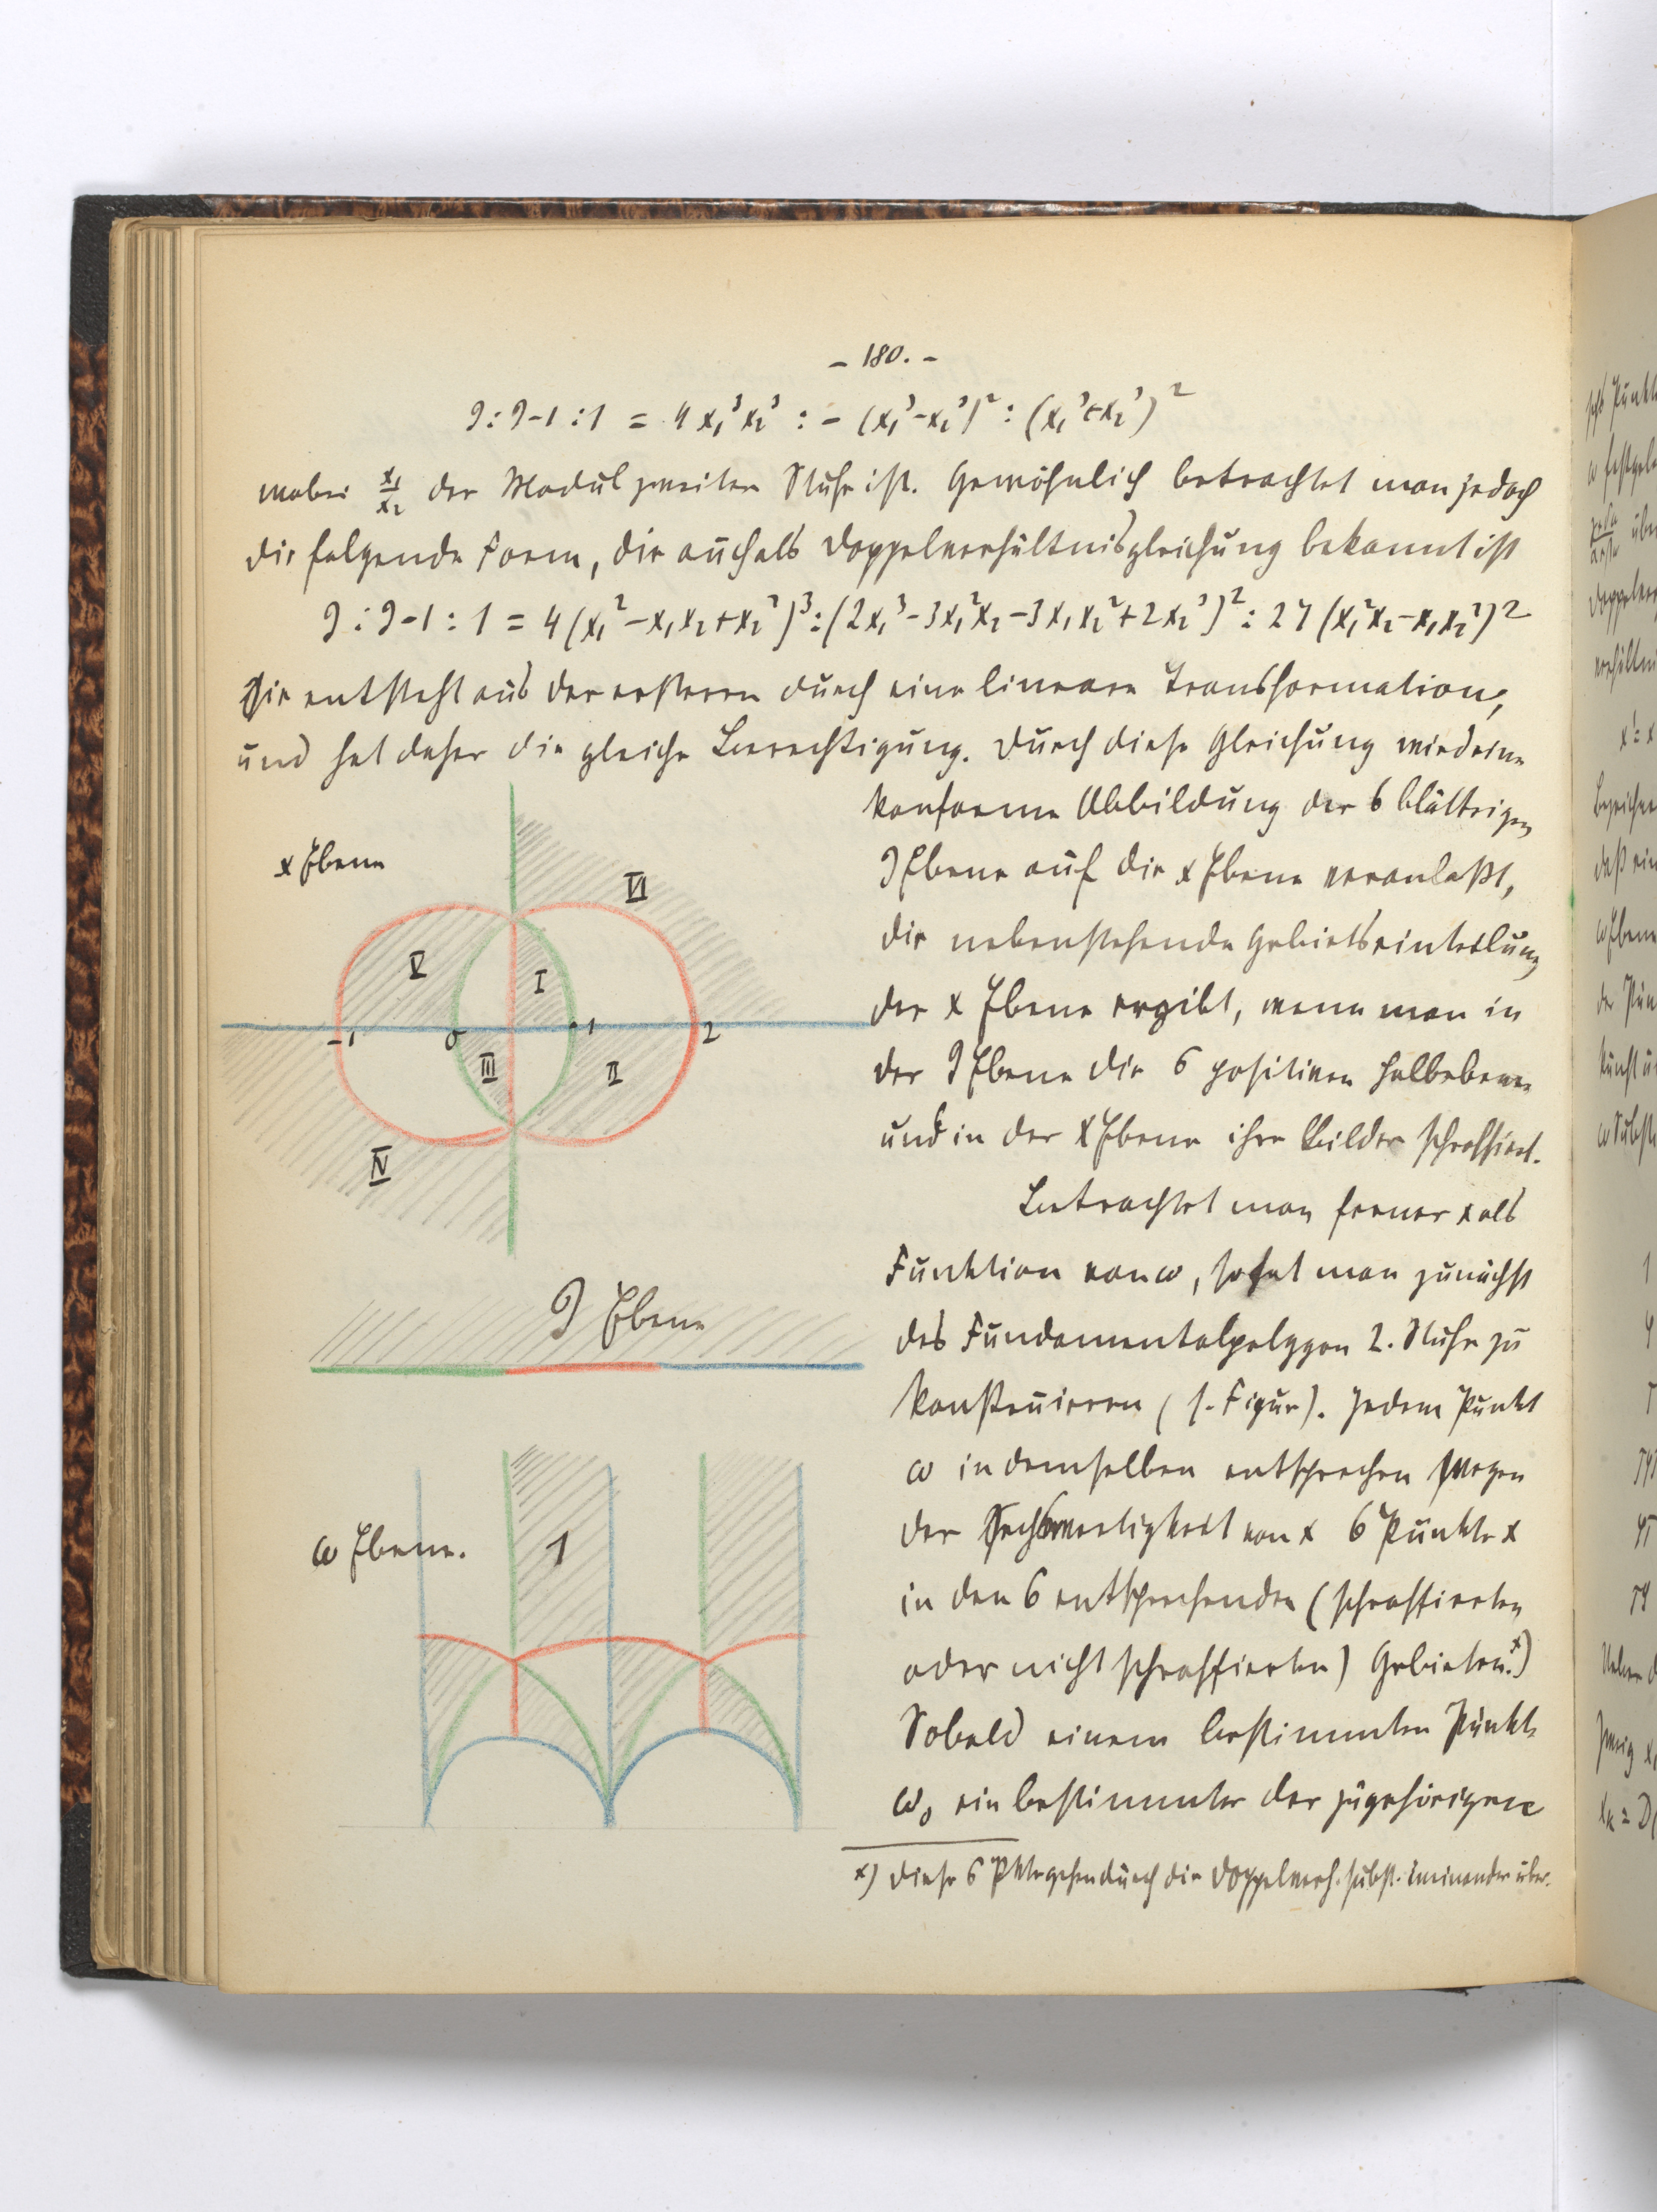 - 180. -
J : J-1 : 1 = 4 x₁³x₂³ : - (x₁³-x₂³)² : (x₁³+x₂³)²
wobei x₁/x₂ der Modul zweiter Stufe ist. Gewöhnlich betrachtet man jedoch
die folgende Form, die auch als Doppelverhältnisgleichung bekannt ist
J : J-1 : 1 = 4 (x₁² - x₁x₂ + x₂²)³ : (2x₁³ - 3x₁²x₂ - 3x₁x₂² + 2x₂³)² : 27 (x₁²x₂ - x₁x₂²)²
Sie entsteht aus der ersteren durch eine lineare Transformation,
und hat daher die gleiche Berechtigung. Durch diese Gleichung wird eine
konforme Abbildung der 6 blättrigen
J Ebene auf die x Ebene veranlaßt,
die nebenstehende Gebietseinteilung
der x Ebene ergibt, wenn man in
der J Ebene die 6 positiven Halbebenen
und in der x Ebene ihre Bilder schraffiert.
Betrachtet man ferner x als
Funktion von ω, so hat man zunächst
das Fundamentalpolygon 2. Stufe zu
konstruieren (s. Figur). Jedem Punkt
ω in demselben entsprechen wegen
der Sechswertigkeit von x 6 Punkte x
in den 6 entsprechenden (schraffierten
oder nicht schraffierten) Gebieten.ˣ)
Sobald einem bestimmten Punkte
ω₀ ein bestimmter der zugehörigen
x) Diese 6 Pkte gehen durch die Doppelverh. subst. ineinander über.
x Ebene
VI
V
I
-1
0
1
2
III
II
IV
J Ebene
ω Ebene.
1